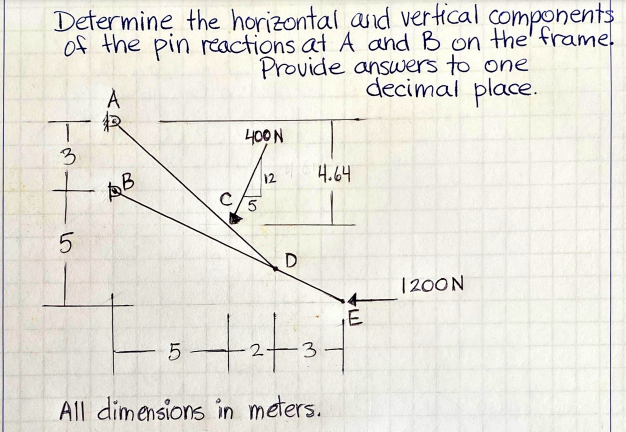 Determine the horizontal and vertical components
of the pin reactions at A and B on the frame.
Provide answers to one
decimal place.
A
400N
3
12
4.64
B
C
5
5
D
1200N
E
5
2
3
All dimensions in meters.